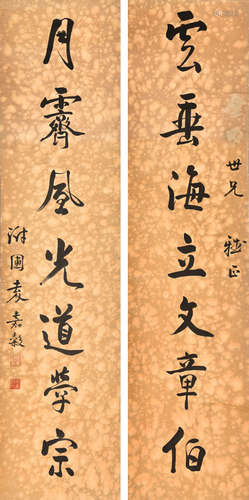 世兄 雅正
雲垂海立文章伯
月霽風光道學宗
澍圃袁嘉穀